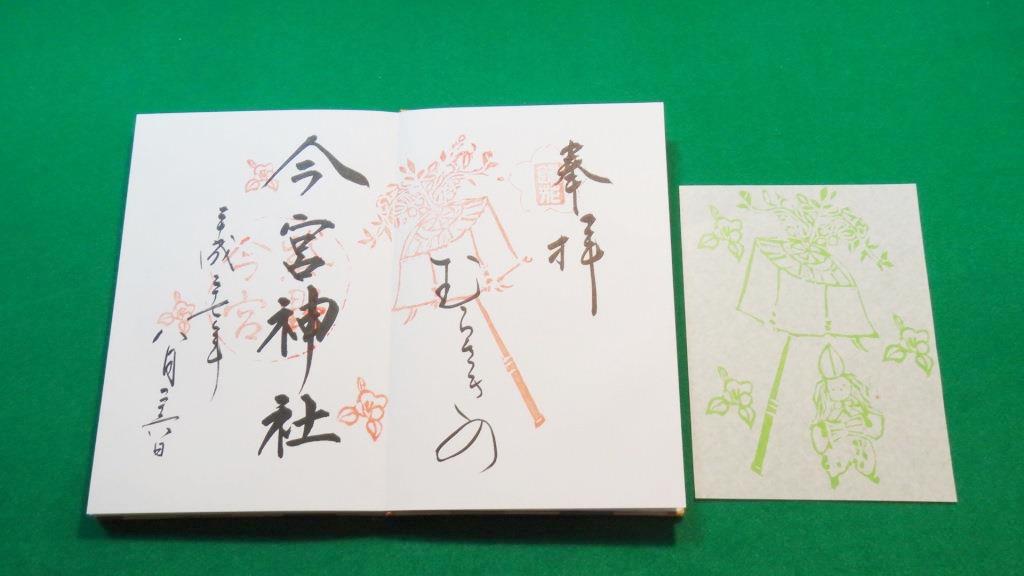 奉拝
むらさきの
今宮神社
今宮
平成二十七年
八月二十八日